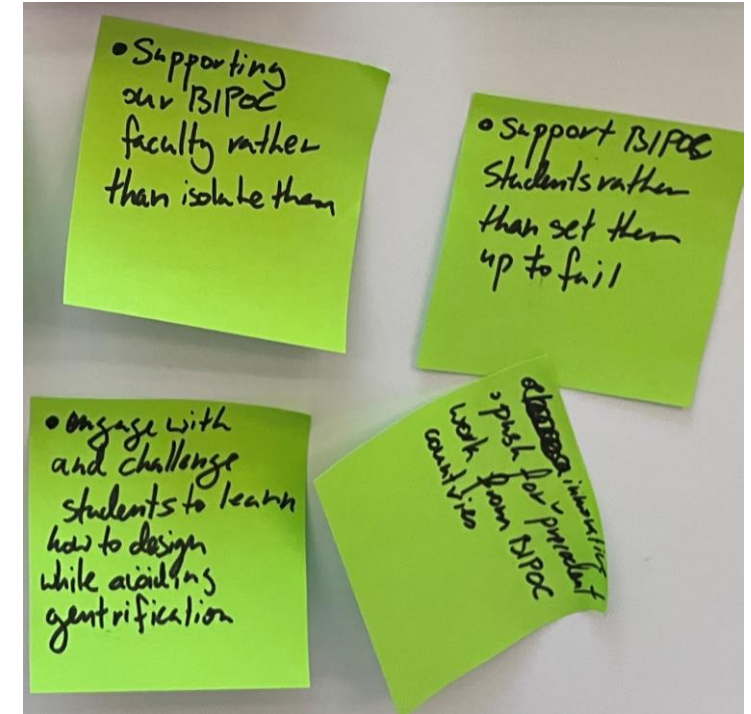 • Supporting
our BIPOC
faculty rather
than isolate them
• Support BIPOC
Students rather
than set them
up to fail
• engage with
and challenge
students to learn
how to design
while avoiding
gentrification
innovative
• push for ˅ precedent
work from BIPOC
countries